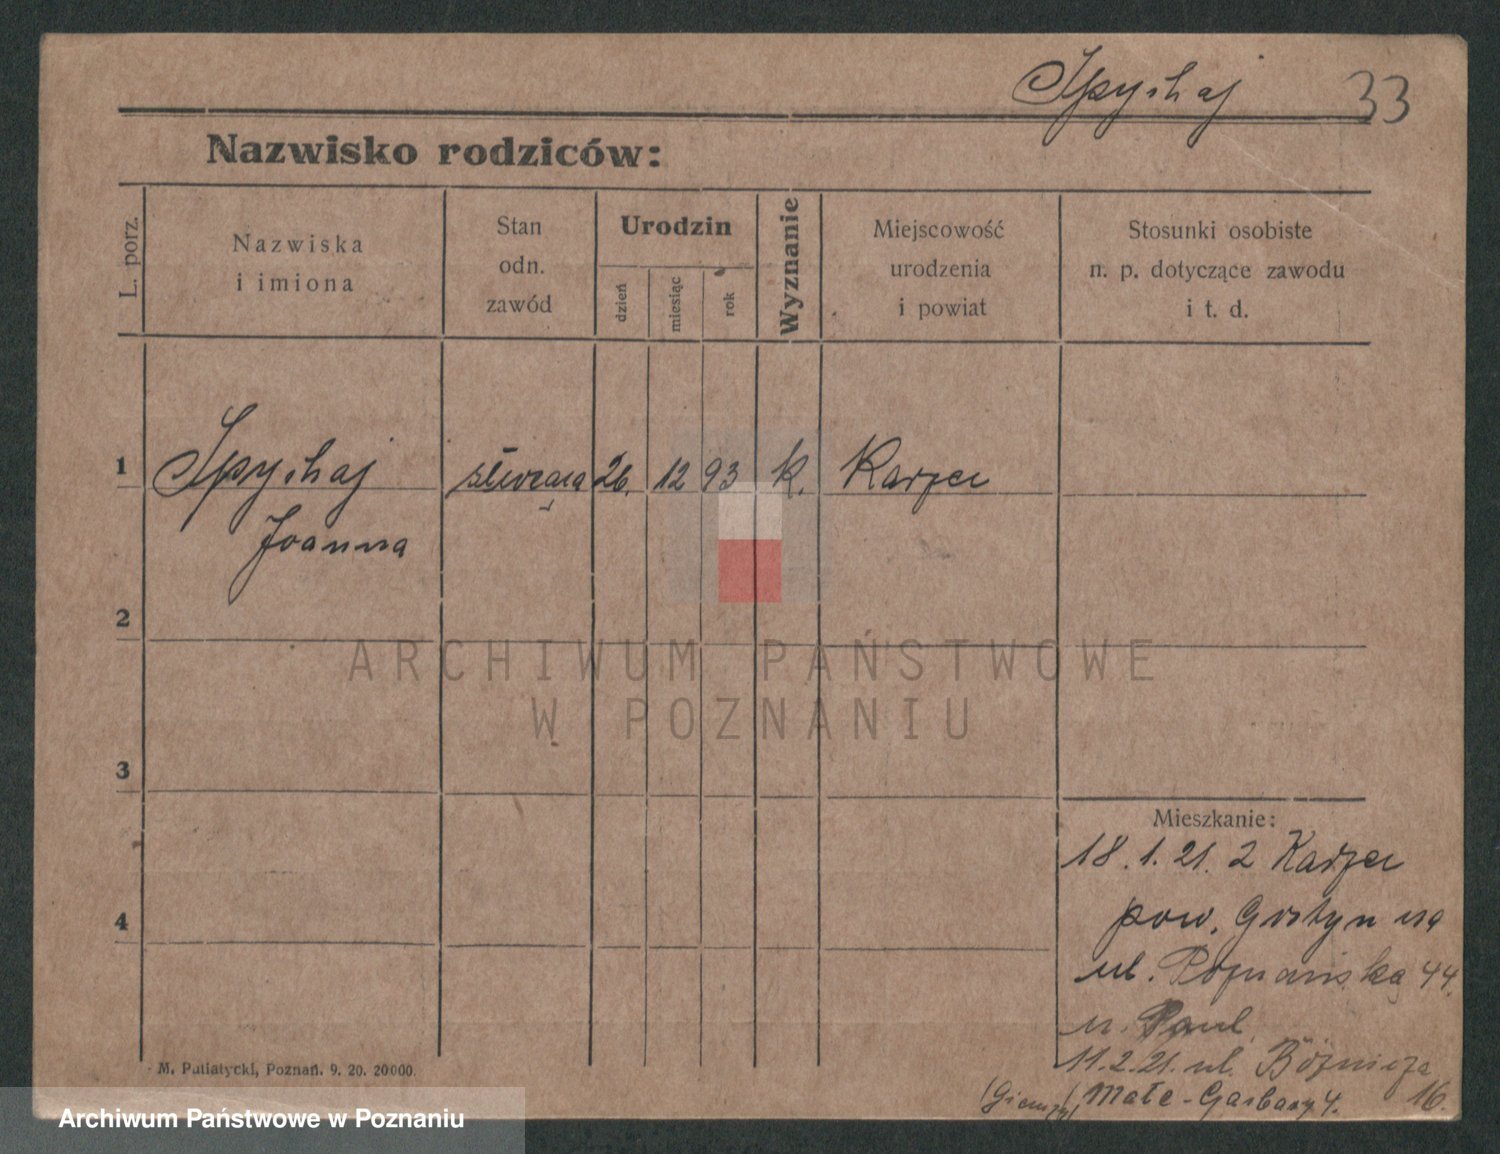 Spychaj 33
Nazwisko rodziców:
L. porz.
Nazwiska
i imiona
Stan
odn.
zawód
Urodzin
dzień
miesiąc
rok
Wyznanie
Miejscowość
urodzenia
i powiat
Stosunki osobiste
n. p. dotyczące zawodu
i t. d.
1 Spychaj 26. 12 93 k. Karzec
Joanna
2
3
4
ARCHIWUM PAŃSTWOWE
W POZNANIU
Mieszkanie:
18.1.21. z Karzec
pow. Gostyn na
ul. Poznańska 44.
u. Paul
11.2.21. ul. Bóżnicza
16.
Małe-Garbary 4.
M. Putiatycki, Poznań. 9. 20. 20000.
Archiwum Państwowe w Poznaniu